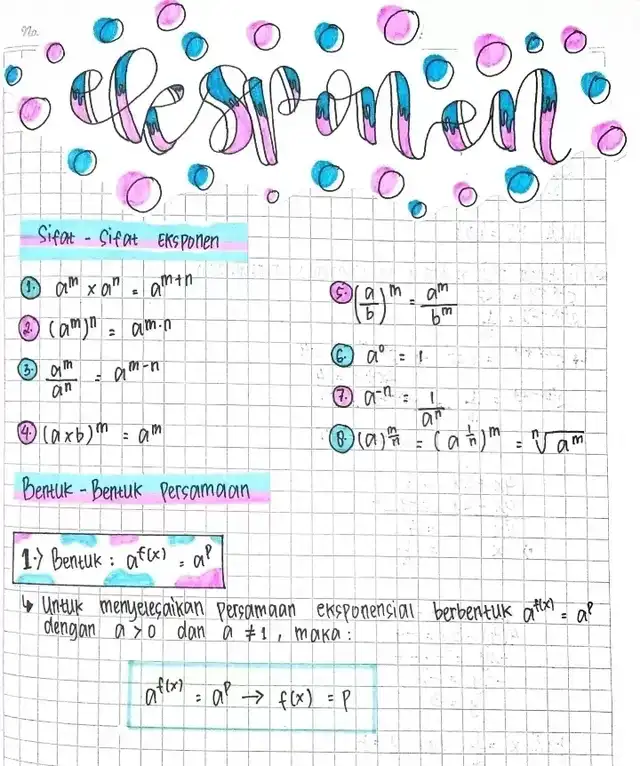 No.
eksponen
Sifat - Sifat Eksponen
1. aᵐ x aⁿ = aᵐ⁺ⁿ
2. (aᵐ)ⁿ = aᵐ·ⁿ
3. aᵐ/aⁿ = aᵐ⁻ⁿ
4. (axb)ᵐ = aᵐ
5. (a/b)ᵐ = aᵐ/bᵐ
6. a⁰ = 1
7. a⁻ⁿ = 1/aⁿ
8. (a)^(m/n) = (a^(1/n))ᵐ = ⁿ√aᵐ
Bentuk - Bentuk Persamaan
1.> Bentuk : a^f(x) = a^p
↳ Untuk menyelesaikan persamaan eksponensial berbentuk a^f(x) = a^p
dengan a > 0 dan a ≠ 1, maka :
a^f(x) = a^p → f(x) = p